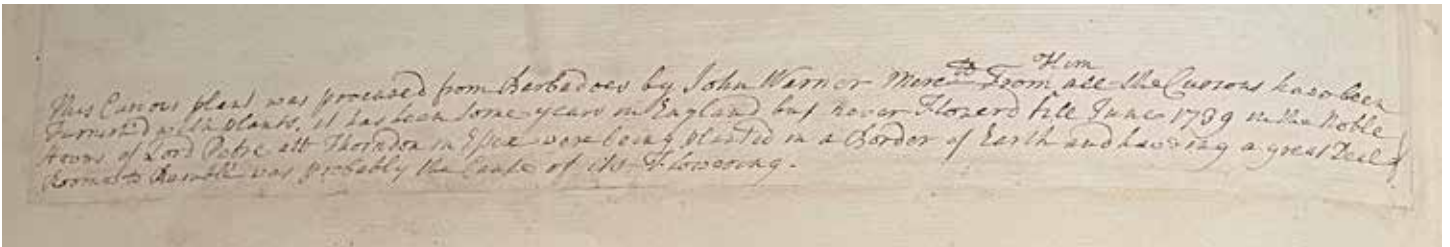 This Curious plant was procured from Barbadoes by John Warner Merct. From Him all the Curious have been
Furnish'd with plants, it has been some years in England but never Flowerd till June 1739 in the Noble
Stoves of Lord Petre att Thorndon in Essex were being planted in a Border of Earth and haveing a great Deal of
Roome to Ramble was probably the Cause of its Flowering.